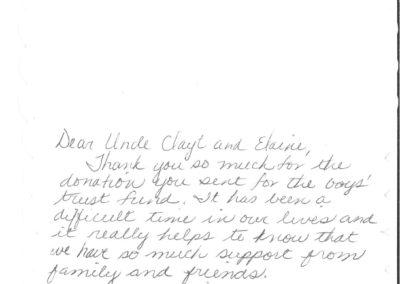 Dear Uncle Clayt and Elaine,
Thank you so much for the
donation you sent for the boys'
trust fund. It has been a
difficult time in our lives and
it really helps to know that
we have so much support from
family and friends.